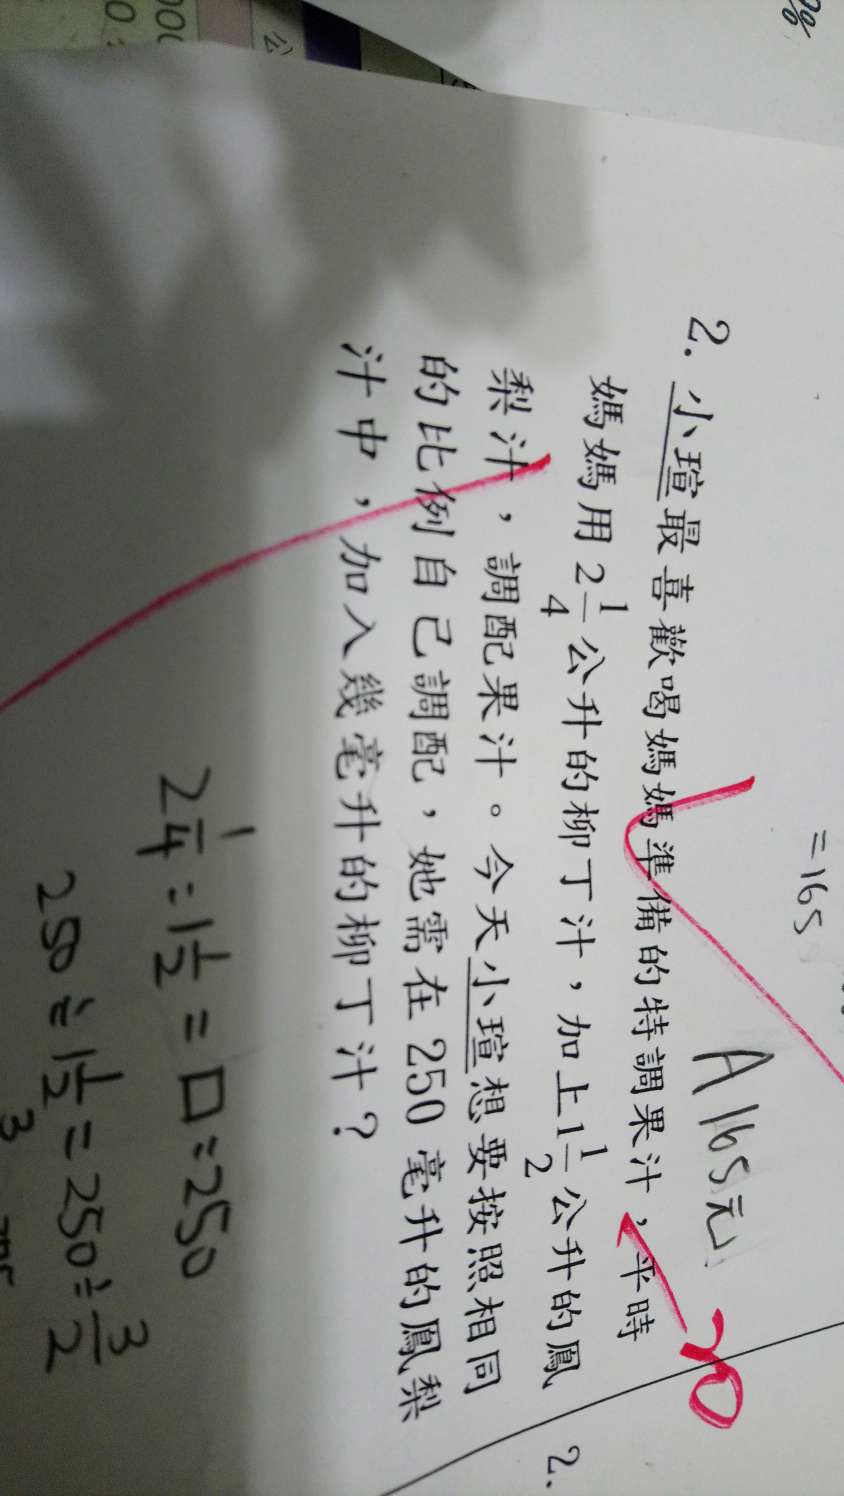 =165
A 165元
20
2. 小瑄最喜歡喝媽媽準備的特調果汁，平時
媽媽用2 1/4公升的柳丁汁，加上1 1/2公升的鳳
梨汁，調配果汁。今天小瑄想要按照相同
的比例自己調配，她需在250毫升的鳳梨
汁中，加入幾毫升的柳丁汁？
2 1/4 : 1 1/2 = □ : 250
250 ÷ 1 1/2 = 250 ÷ 3/2
3
2.
公